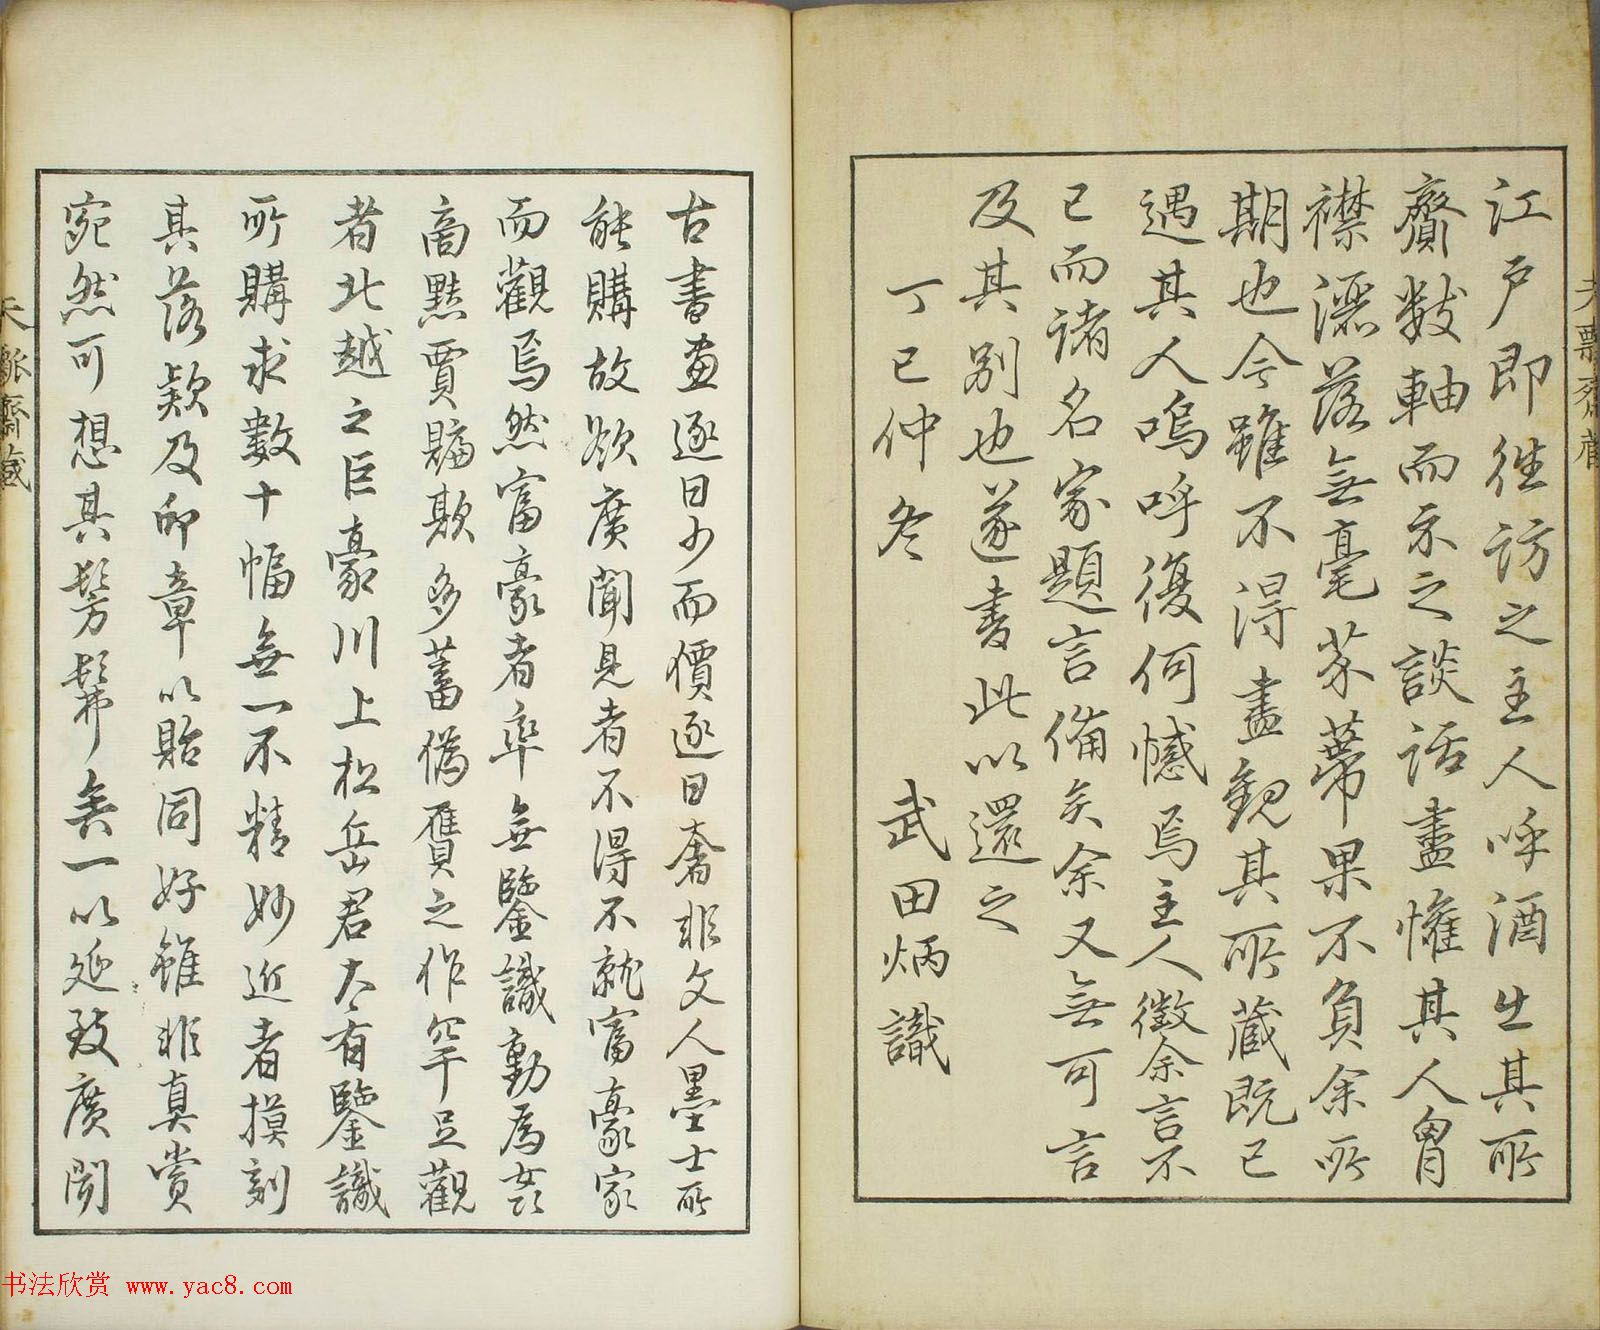 江戸即徃訪之主人呼酒出其所
齎数軸而示之談話盡懽其人胷
襟灑落無毫芥蔕果不負余所
期也今雖不得盡観其所蔵既已
遇其人嗚呼復何憾焉主人徴余言不
已而諸名家題言備矣余又無可言
及其別也遂書此以還之
丁巳仲冬 武田炳識
古書畫逐日少而價逐日奢非文人墨士所
能購故欲廣聞見者不得不就富豪家
而觀焉然富豪者率無鑒識動為
高點賈贓欺多蓄僞贋之作罕足觀
者北越之巨豪川上松岳君大有鑒識
所購求數十幅無一不精妙近者摸刻
其落款及印章以貽同好雖非真賞
宛然可想其髣髴矣一以延致廣聞
齋蔵
书法欣赏 www.yac8.com